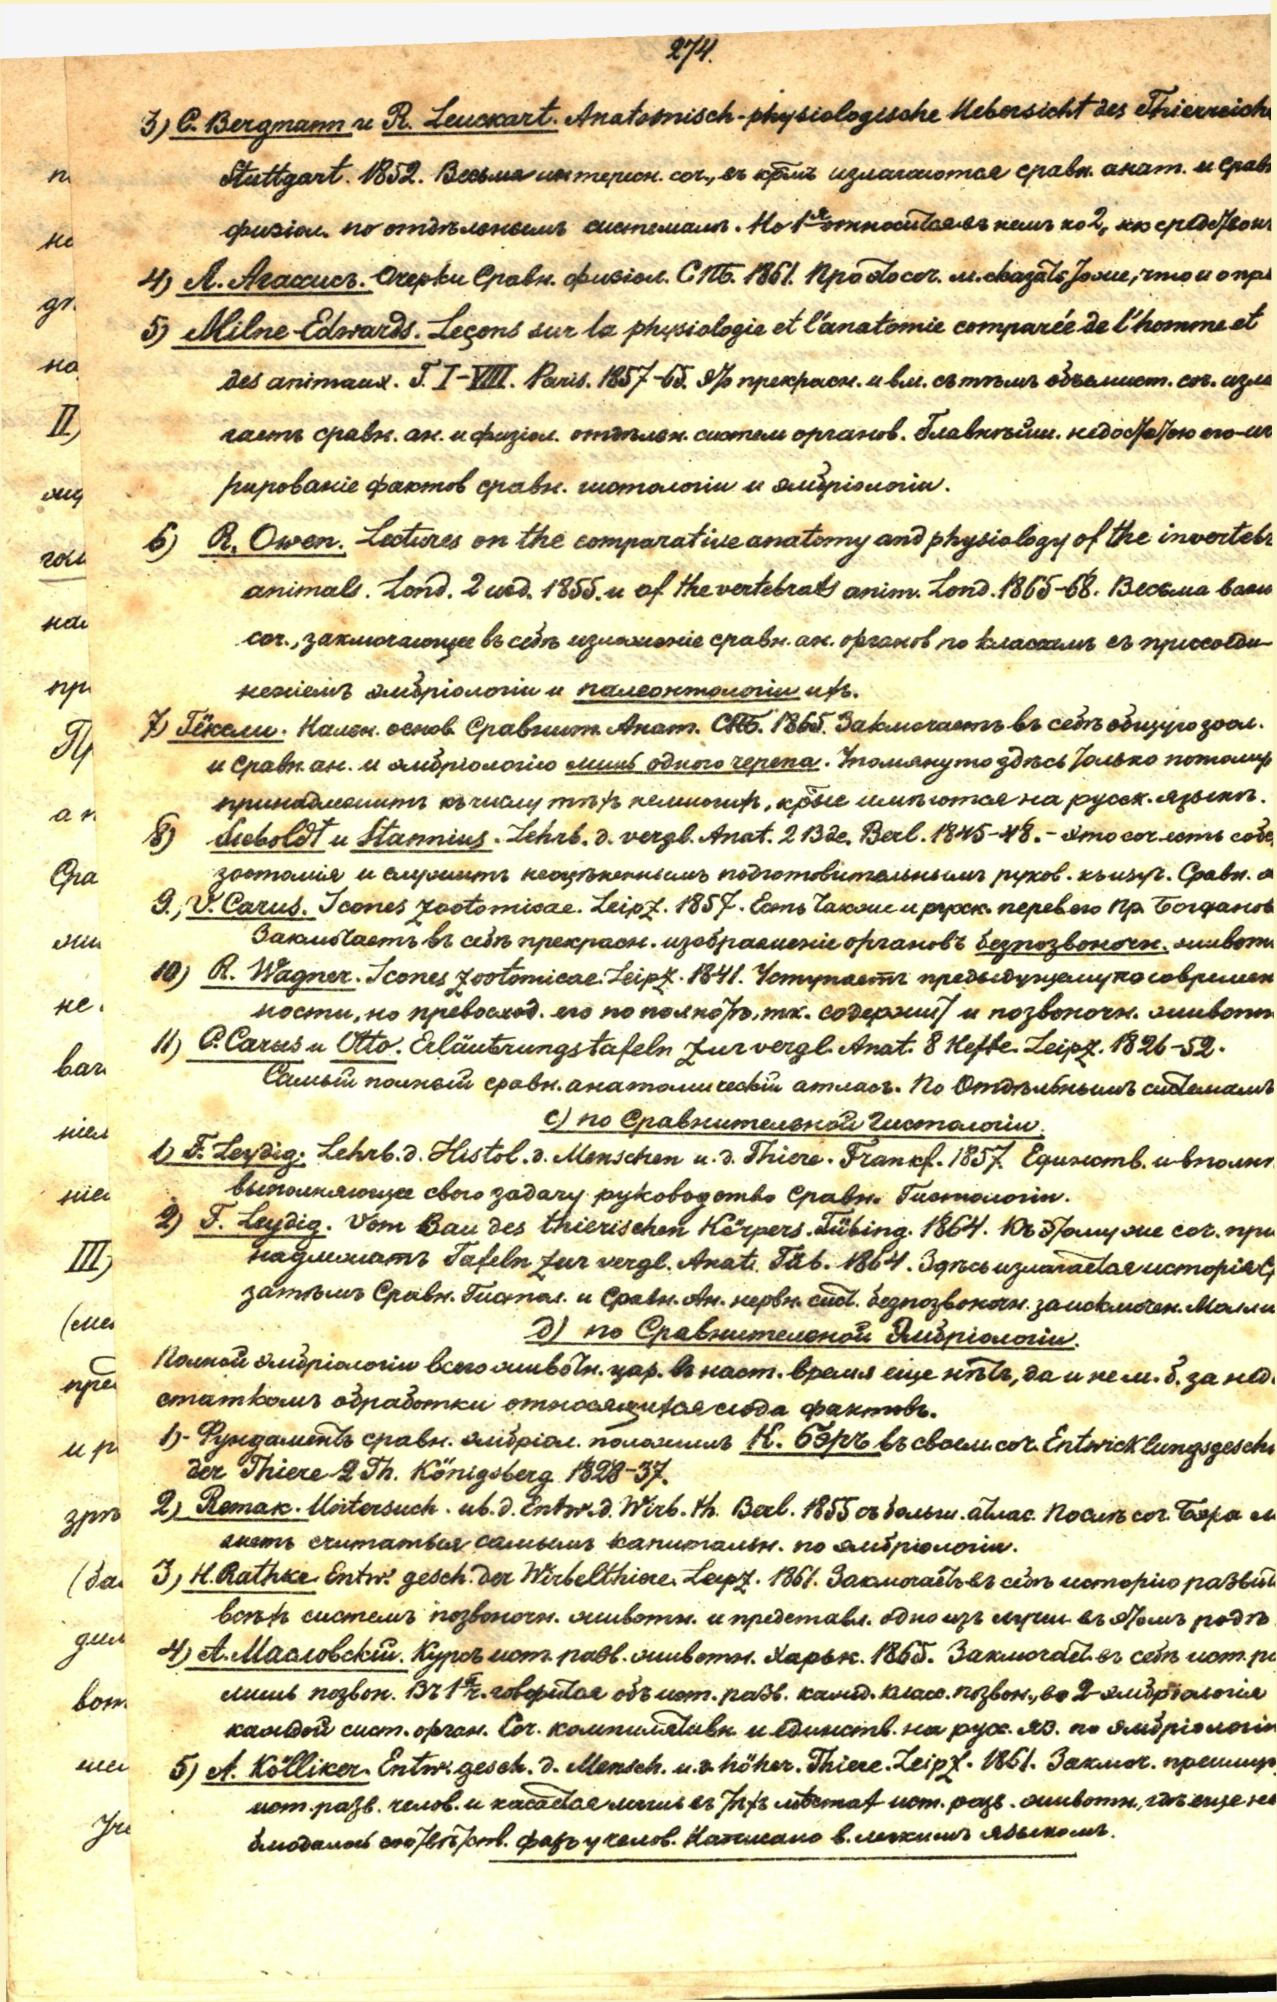 274.
3) C. Bergmann и R. Leuckart. Anatomisch-physiologische Uebersicht des Thierreich
Stuttgart. 1852. Весьма интересн. соч., въ кᵒмъ излагаются сравн. анат. и срав
физіол. по отдѣльнымъ системамъ. Но 1ᵃ относится въ немъ ко 2,
4) Л. Агассисъ. Очерки Сравн. физіол. С.ПБ. 1861. Про это соч. м. сказать тоже, что и о
5) Milne-Edwards. Leçons sur la physiologie et l'anatomie comparée de l'homme et
des animaux. T. I-VIII. Paris. 1857-65. Это прекрасн. и вм. съ тѣмъ объемист. соч. изла
гаетъ сравн. ан. и физіол. отдѣльн. систем органов. Главнѣйш. недостаток его-иг
рированіе фактов сравн. гистологіи и эмбріологіи.
6) R. Owen. Lectures on the comparative anatomy and physiology of the invertebr
animals. Lond. 2 изд. 1855. и of the vertebrats anim. Lond. 1865-68. Весьма важн
соч., заключающее въ себѣ изложеніе сравн. ан. органов по классамъ съ присоеди-
неніемъ эмбріологіи и палеонтологіи ихъ.
7) Гёксли. Начал. основ. Сравнит. Анат. СПБ. 1865. Заключаетъ въ себѣ общую зоол.
и сравн. ан. и эмбріологію лишь одного черепа. Упомянуто здѣсь только потому
принадлежитъ къ числу тѣхъ немногихъ, кᵒые имѣются на русск. языкѣ.
8) Siebold't и Stannius. Lehrb. d. vergl. Anat. 2 Bde. Berl. 1845-48. - Это соч. есть собс
зоотомія и служитъ неоцѣненнымъ подготовительнымъ руков. къ изуч. Сравн. а
9., V. Carus. Icones zootomicae. Leipz. 1857. Есть также и русск. перев. его Пр. Богданов
Заключаетъ въ себѣ прекрасн. изображеніе органовъ безпозвоночн. животн
10) R. Wagner. Icones zootomicae. Leipz. 1841. Уступаетъ предыдущему по современ
ности, но превосход. его по полнотѣ, т.к. содержит и позвоночн. животн
11) C. Carus и Otto. Erläutrungstafeln zur vergl. Anat. 8 Hefte. Leipz. 1826-52.
Самый полный сравн. анатомическій атласъ. По отдѣльнымъ системамъ
с) по Сравнительной Гистологіи.
1) F. Leydig. Lehrb. d. Histol. d. Menschen u. d. Thiere. Frankf. 1857. Единств. и вполн
выполняющее свою задачу руководство Сравн. Гистологіи.
2) F. Leydig. Vom Bau des thierischen Körpers. Tübing. 1864. Къ этому же соч. при
надлежатъ Tafeln zur vergl. Anat. Tüb. 1864. Здѣсь излагается исторія С
затѣмъ Сравн. Гистол. и Сравн. Ан. нервн. сист. безпозвоночн. за исключен. Молли
d) по Сравнительной Эмбріологіи.
Полной эмбріологіи всего животн. цар. въ наст. время еще нѣтъ, да и не м. б. за нед
статкомъ обработки относящихся сюда фактовъ.
1)- Фундаментъ сравн. эмбріол. положилъ К. Бэръ въ своем соч. Entwicklungsgesch
der Thiere 2 Th. Königsberg 1828-37.
2) Remak. Untersuch. üb. d. Entw. d. Wirb. th. Berl. 1855 съ больш. атлас. Послѣ соч. Бэра м
жетъ считаться самымъ капитальн. по эмбріологіи.
3) H. Rathke. Entw. gesch. der Wirbelthiere. Leipz. 1861. Заключаетъ въ себѣ исторію развит
всѣхъ системъ позвоночн. животн. и представл. одно изъ лучш. въ этомъ родѣ
4) А. Масловскій. Курсъ ист. разв. животн. Харьк. 1865. Заключает. въ себѣ ист. ра
лишь позвон. Въ 1ᵒй ч. говорится объ ист. разв. кажд. класс. позвон., во 2-эмбріологія
каждой сист. орган. Соч. компилятивн. и единств. на рус. яз. по эмбріологіи
5) A. Kölliker. Entw. gesch. d. Mensch. u. d. höher. Thiere. Leipz. 1861. Заключ. преимущ
ист. разв. челов. и касается лишь въ тѣхъ мѣстах ист. разв. животн., гдѣ еще не
блюдалось соотвѣтств. фазъ у челов. Написано в. легкимъ языкомъ.
II)
III)